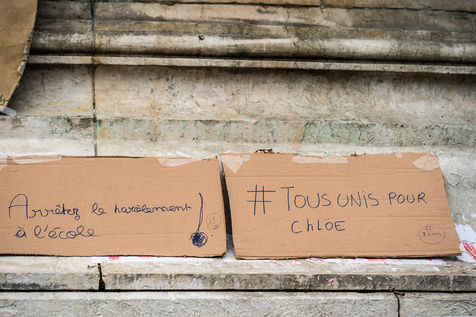 Arrêtez le harcèlement !
à l'école
# TOUS UNIS POUR
CHLOE